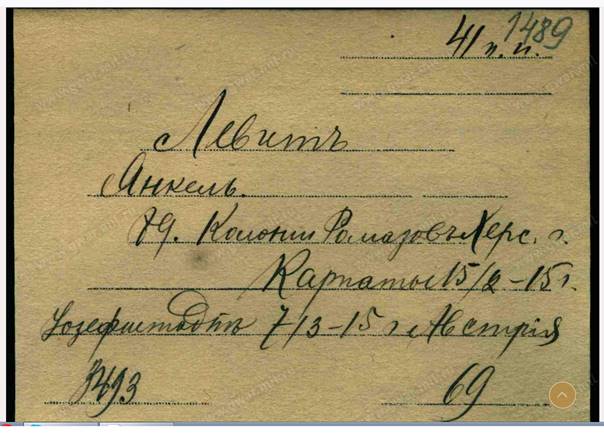 1489
41 п. п.
Левитъ
Анкель.
Колонии Ромазовъ Херс. г.
Карпаты 15/2 – 15 г.
Iозефштадтъ 7/3 – 15 г Австрія
69